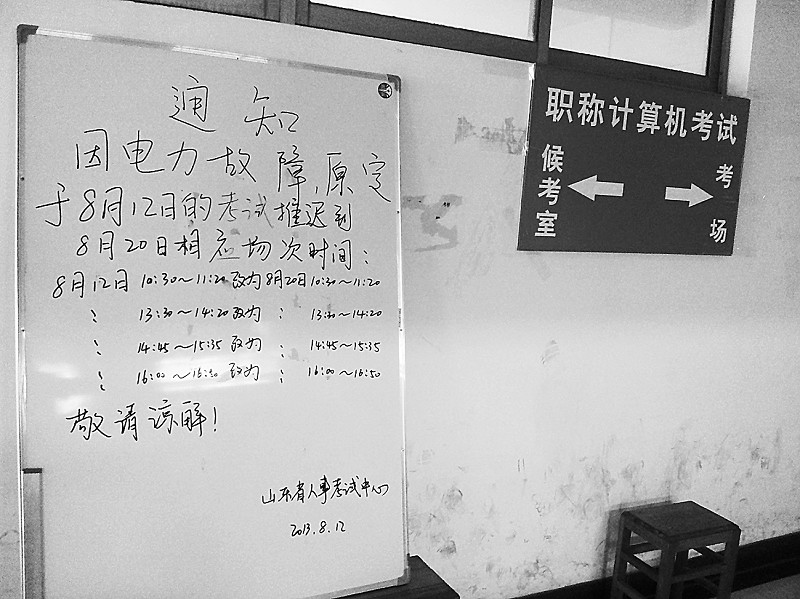 通知
因电力故障,原定
于8月12日的考试推迟到
8月20日相应场次时间:
8月12日 10:30~11:20 改为 8月20日 10:30~11:20
: 13:30~14:20 改为 : 13:30~14:20
: 14:45~15:35 改为 : 14:45~15:35
: 16:00~16:50 改为 : 16:00~16:50
敬请谅解!
山东省人事考试中心
2013.8.12
职称计算机考试
候考室
考场